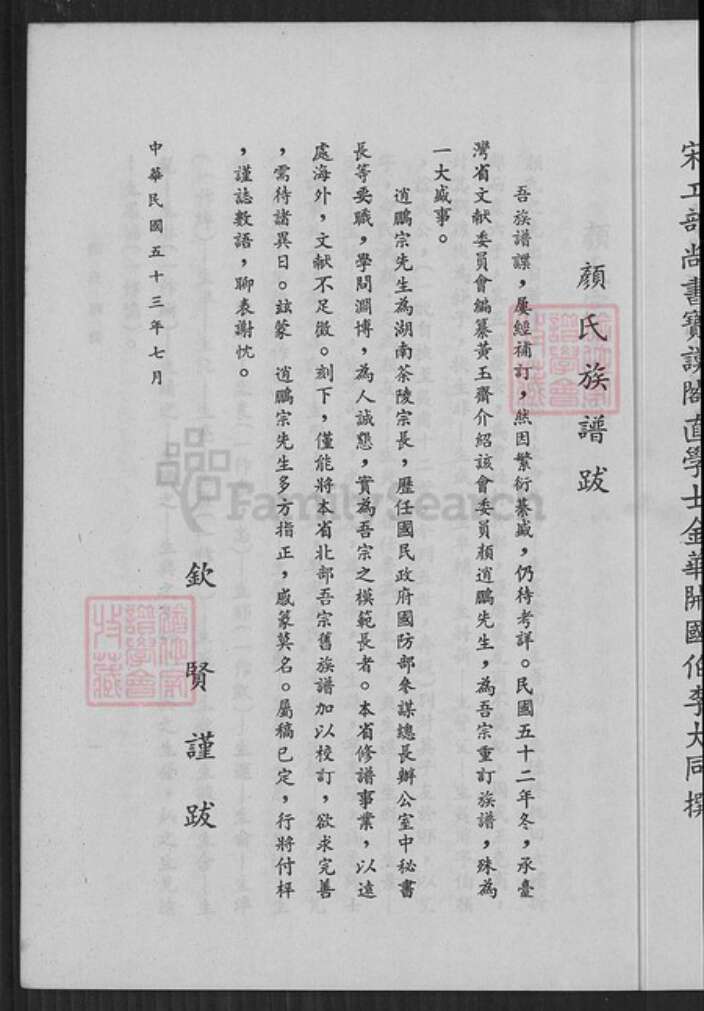 宋工部尚書寶謨閣直學士金華開國伯李大同撰
顏氏族譜跋
吾族譜諜，屢經補訂，然因繁衍綦盛，仍待考詳。民國五十二年冬，承臺
灣省文献委員會編纂黃玉齋介紹該會委員顏逍鵬先生，為吾宗重訂族譜，殊為
一大盛事。
逍鵬宗先生為湖南茶陵宗長，歷任國民政府國防部參謀總長辦公室中秘書
長等要職，學問淵博，為人誠懇，實為吾宗之模範長者。本省修譜事業，以遠
處海外，文献不足徵。刻下，僅能將本省北部吾宗舊族譜加以校訂，欲求完善
，需待諸異日。玆蒙 逍鵬宗先生多方指正，感篆莫名。屬稿已定，行將付梓
，謹誌數語，聊表謝忱。
中華民國五十三年七月
欽賢謹跋
FamilySearch